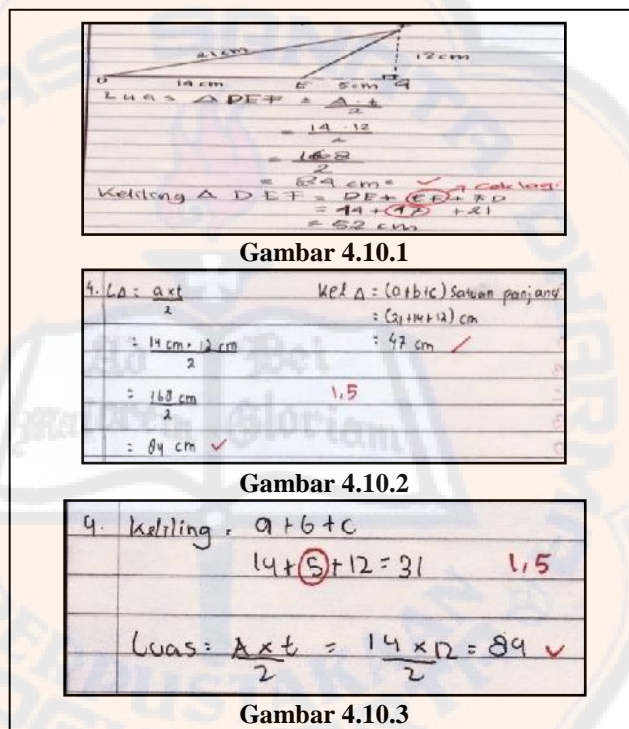 21cm
12cm
D 14cm E 5cm G
Luas Δ DEF = A.t
2
= 14 .12
2
= 168
2
= 84 cm² ✓
Keliling Δ DEF = DE + EF + FD
= 14 + 17 + 21
= 52 cm
Gambar 4.10.1
4. LΔ = axt
2
= 14 cm . 12 cm
2
= 168 cm
2
= 84 cm ✓
Kel Δ = (a+b+c) Satuan panjang
= (21+14+12) cm
= 47 cm
1,5
Gambar 4.10.2
4. Keliling = a + b + c
14 + 5 + 12 = 31 1,5
Luas = A x t = 14 x 12 = 84 ✓
2 2
Gambar 4.10.3